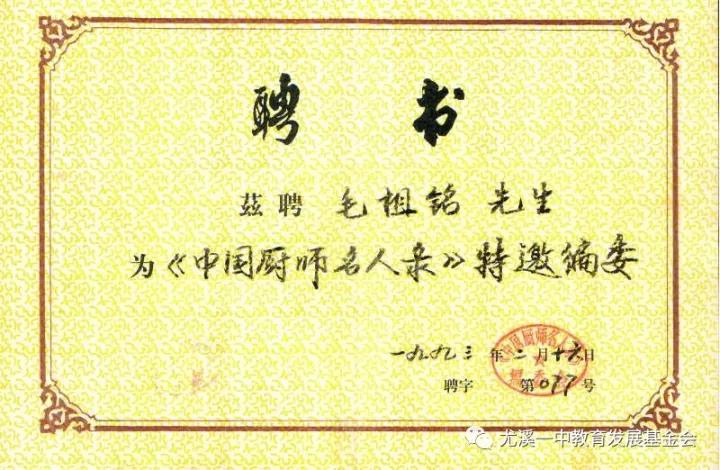 聘书
兹聘 毛祖铭 先生
为《中国厨师名人录》特邀编委
一九九三年二月十六日
聘字 第077号
尤溪一中教育发展基金会